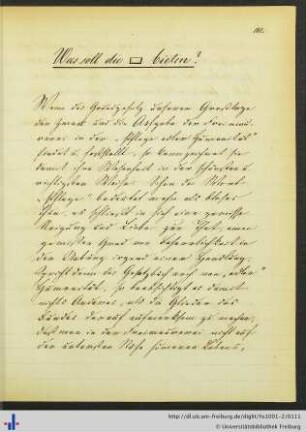 Was soll die □ bieten?
Wenn das Grundgesetz unserer Großloge
den Zweck und die Aufgabe der Freimau-
rerei in der „Pflege edler Humanität"
findet u. feststellt, so kennzeichnet sie
damit ihre Wesenheit in der schönsten u.
wichtigsten Weise. Schon das Wort
„Pflege" bedeutet mehr als bloßes
es schließt in sich eine gewisse
Neigung und Liebe zur That, einen
gewissen Grad von Beharrlichkeit in
der Uebung irgend einer Handlung.
Spricht dann das Gesetzbuch noch von „edler"
Humanität, so beabsichtigt es damit
nichts Anderes, als die Glieder des
Bundes darauf aufmerksam zu machen,
daß man in der Freimaurerei nicht auf
der untersten Stufe humanen Lebens,
http://dl.ub.uni-freiburg.de/diglit/hs1001-2/0111
© Universitätsbibliothek Freiburg